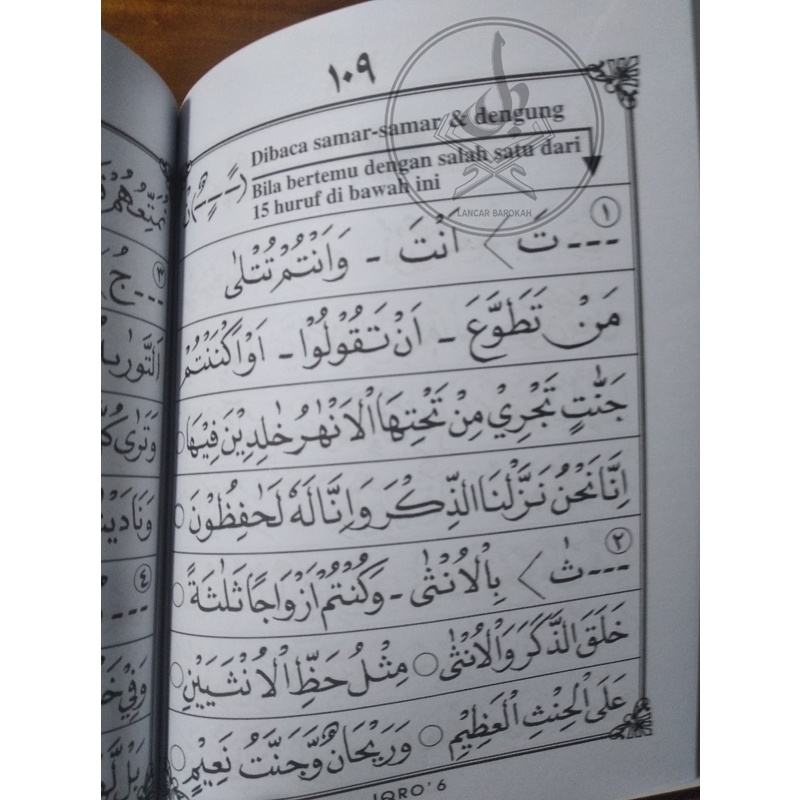 ١٠٩
Dibaca samar-samar & dengung
Bila bertemu dengan salah satu dari
15 huruf di bawah ini
LANCAR BAROKAH
١
--- تَ < اَنْتَ - وَاَنْتُمْ تُتْلٰى
مَنْ تَطَوَّعَ - اَنْ تَقُوْلُوْا - اَوْ اَكْنَنْتُمْ
جَنّٰتٍ تَجْرِيْ مِنْ تَحْتِهَا الْاَنْهٰرُ خٰلِدِيْنَ فِيْهَا
اِنَّا نَحْنُ نَزَّلْنَا الذِّكْرَ وَاِنَّا لَهٗ لَحٰفِظُوْنَ
٢
--- ثٰ < بِالْاُنْثٰى - وَكُنْتُمْ اَزْوَاجًا ثَلٰثَةً
خَلَقَ الذَّكَرَ وَالْاُنْثٰى ○ مِثْلُ حَظِّ الْاُنْثَيَيْنِ
عَلَى الْحِنْثِ الْعَظِيْمِ ○ وَرَيْحَانٌ وَّجَنَّتُ نَعِيْمٍ
IQRO' 6
٣
٤